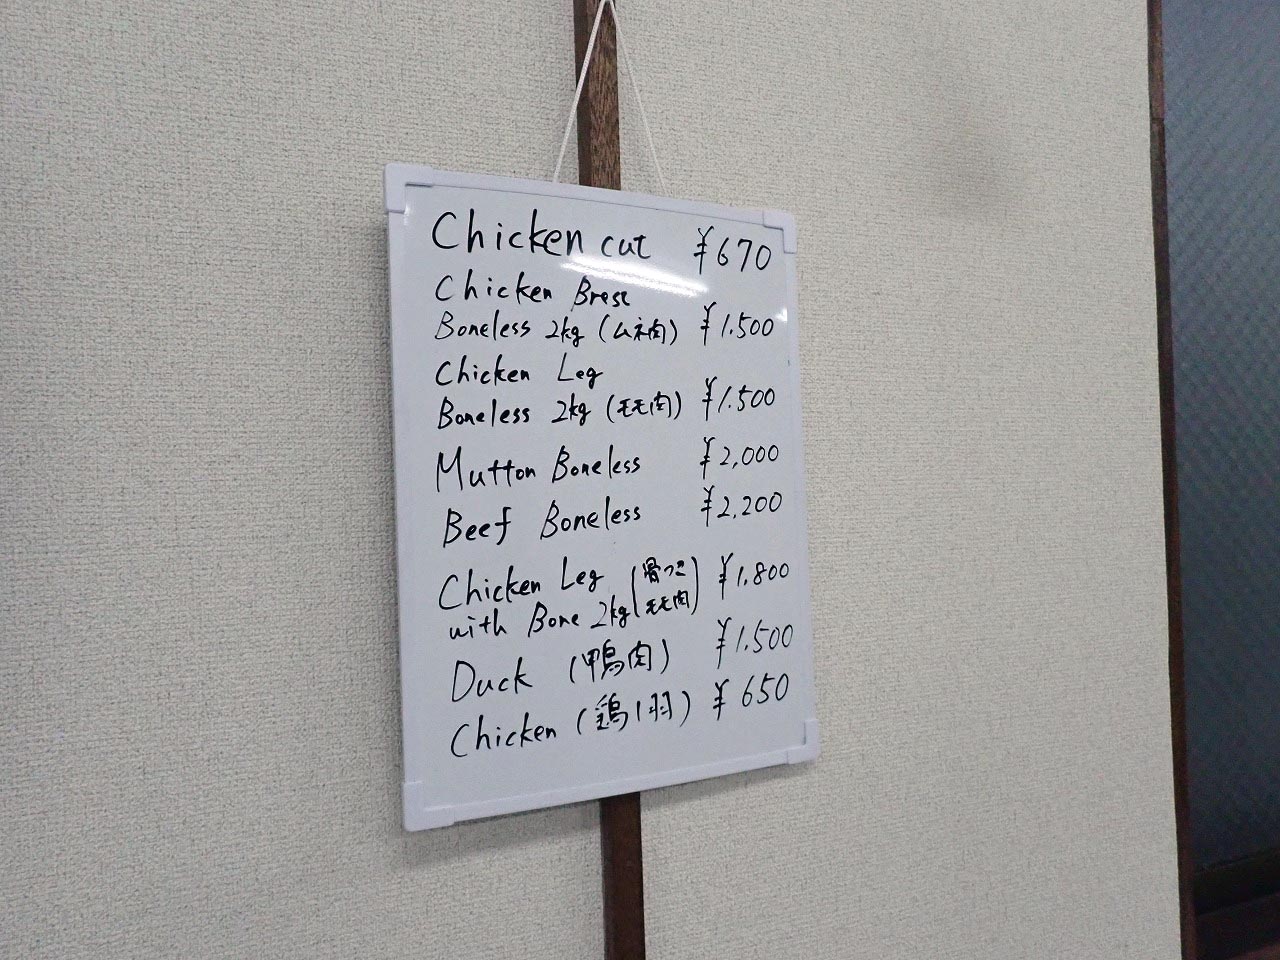 Chicken cut ¥670
Chicken Brest
Boneless 2kg (ムネ肉) ¥1.500
Chicken Leg
Boneless 2kg (モモ肉) ¥1.500
Mutton Boneless ¥2,000
Beef Boneless ¥2.200
Chicken Leg (骨つき
with Bone 2kg モモ肉) ¥1.800
Duck (鴨肉) ¥1.500
Chicken (鶏1羽) ¥650